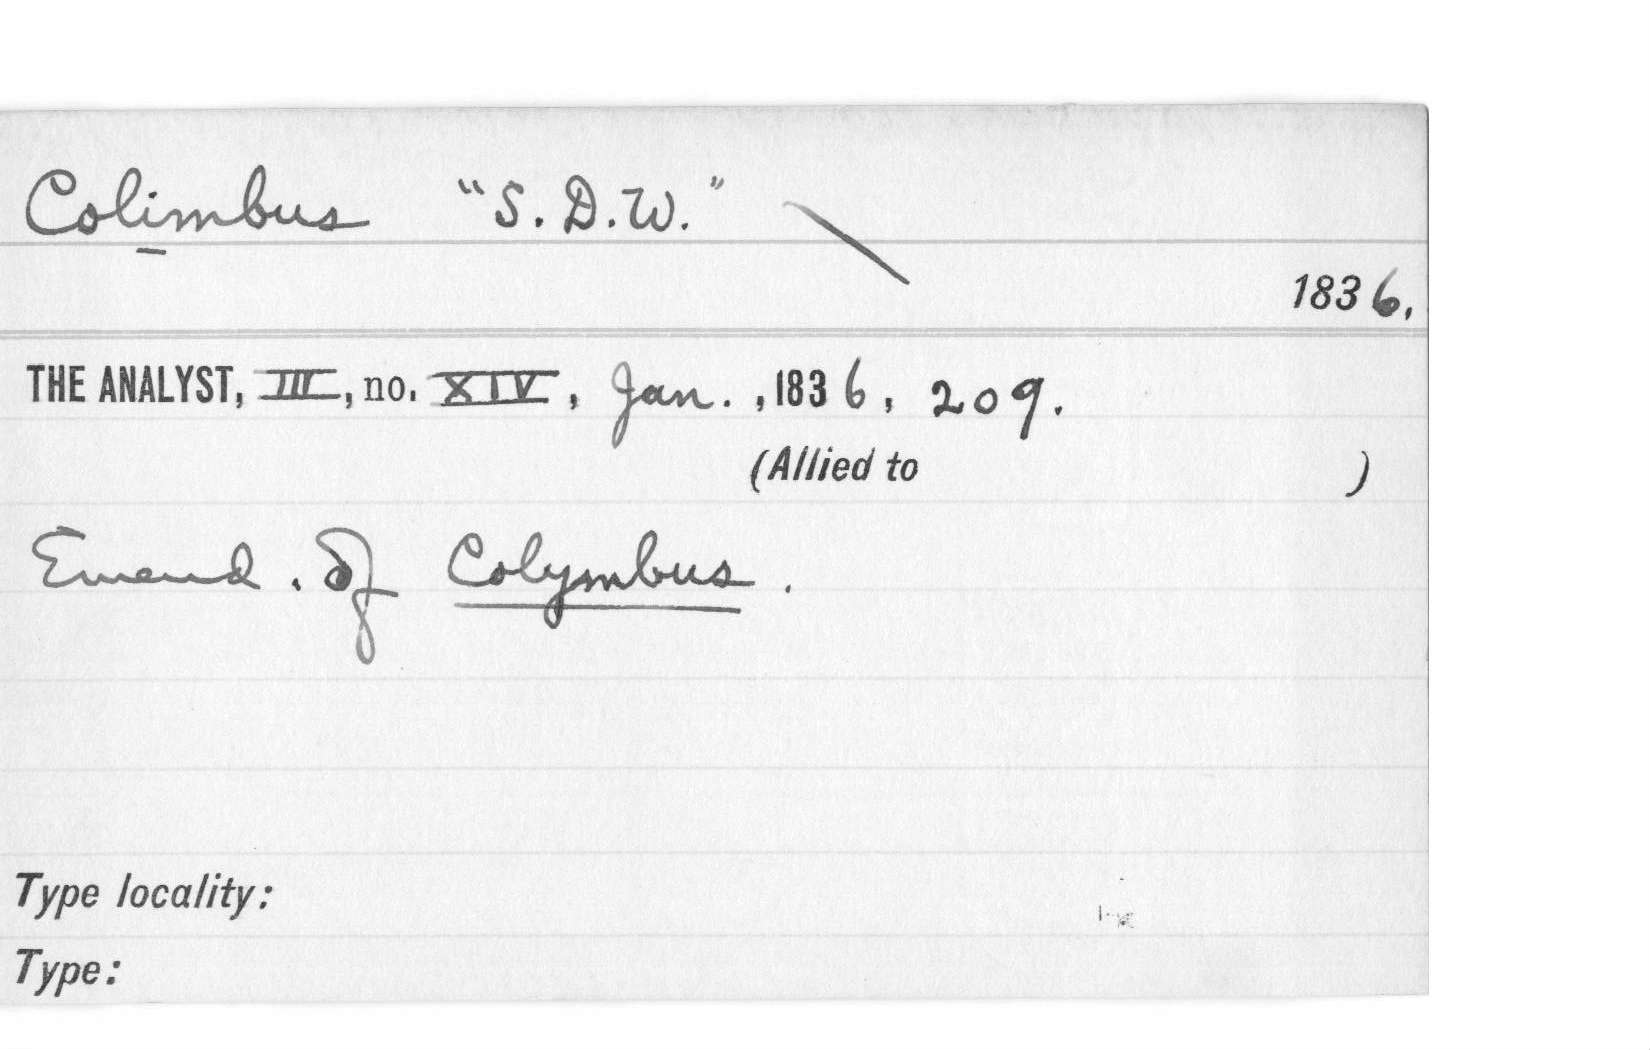 Colimbus "S. D. W."
1836.
THE ANALYST, III, no. XIV, Jan. , 1836, 209.
(Allied to )
Emend. of Colymbus.
Type locality:
Type: